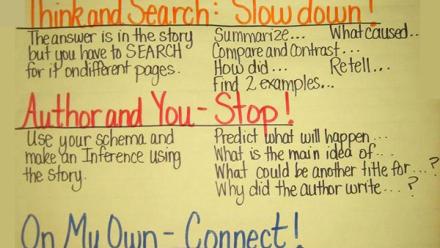 Think and Search: Slow down!
The answer is in the story
but you have to SEARCH
for it on different pages.
Summarize... What caused..
Compare and Contrast...
How did ... Retell...
Find 2 examples...
Author and You - Stop!
Use your schema and
make an Inference using
the story.
Predict what will happen...
What is the main idea of...
What could be another title for...?
Why did the author write...?
On My Own - Connect!